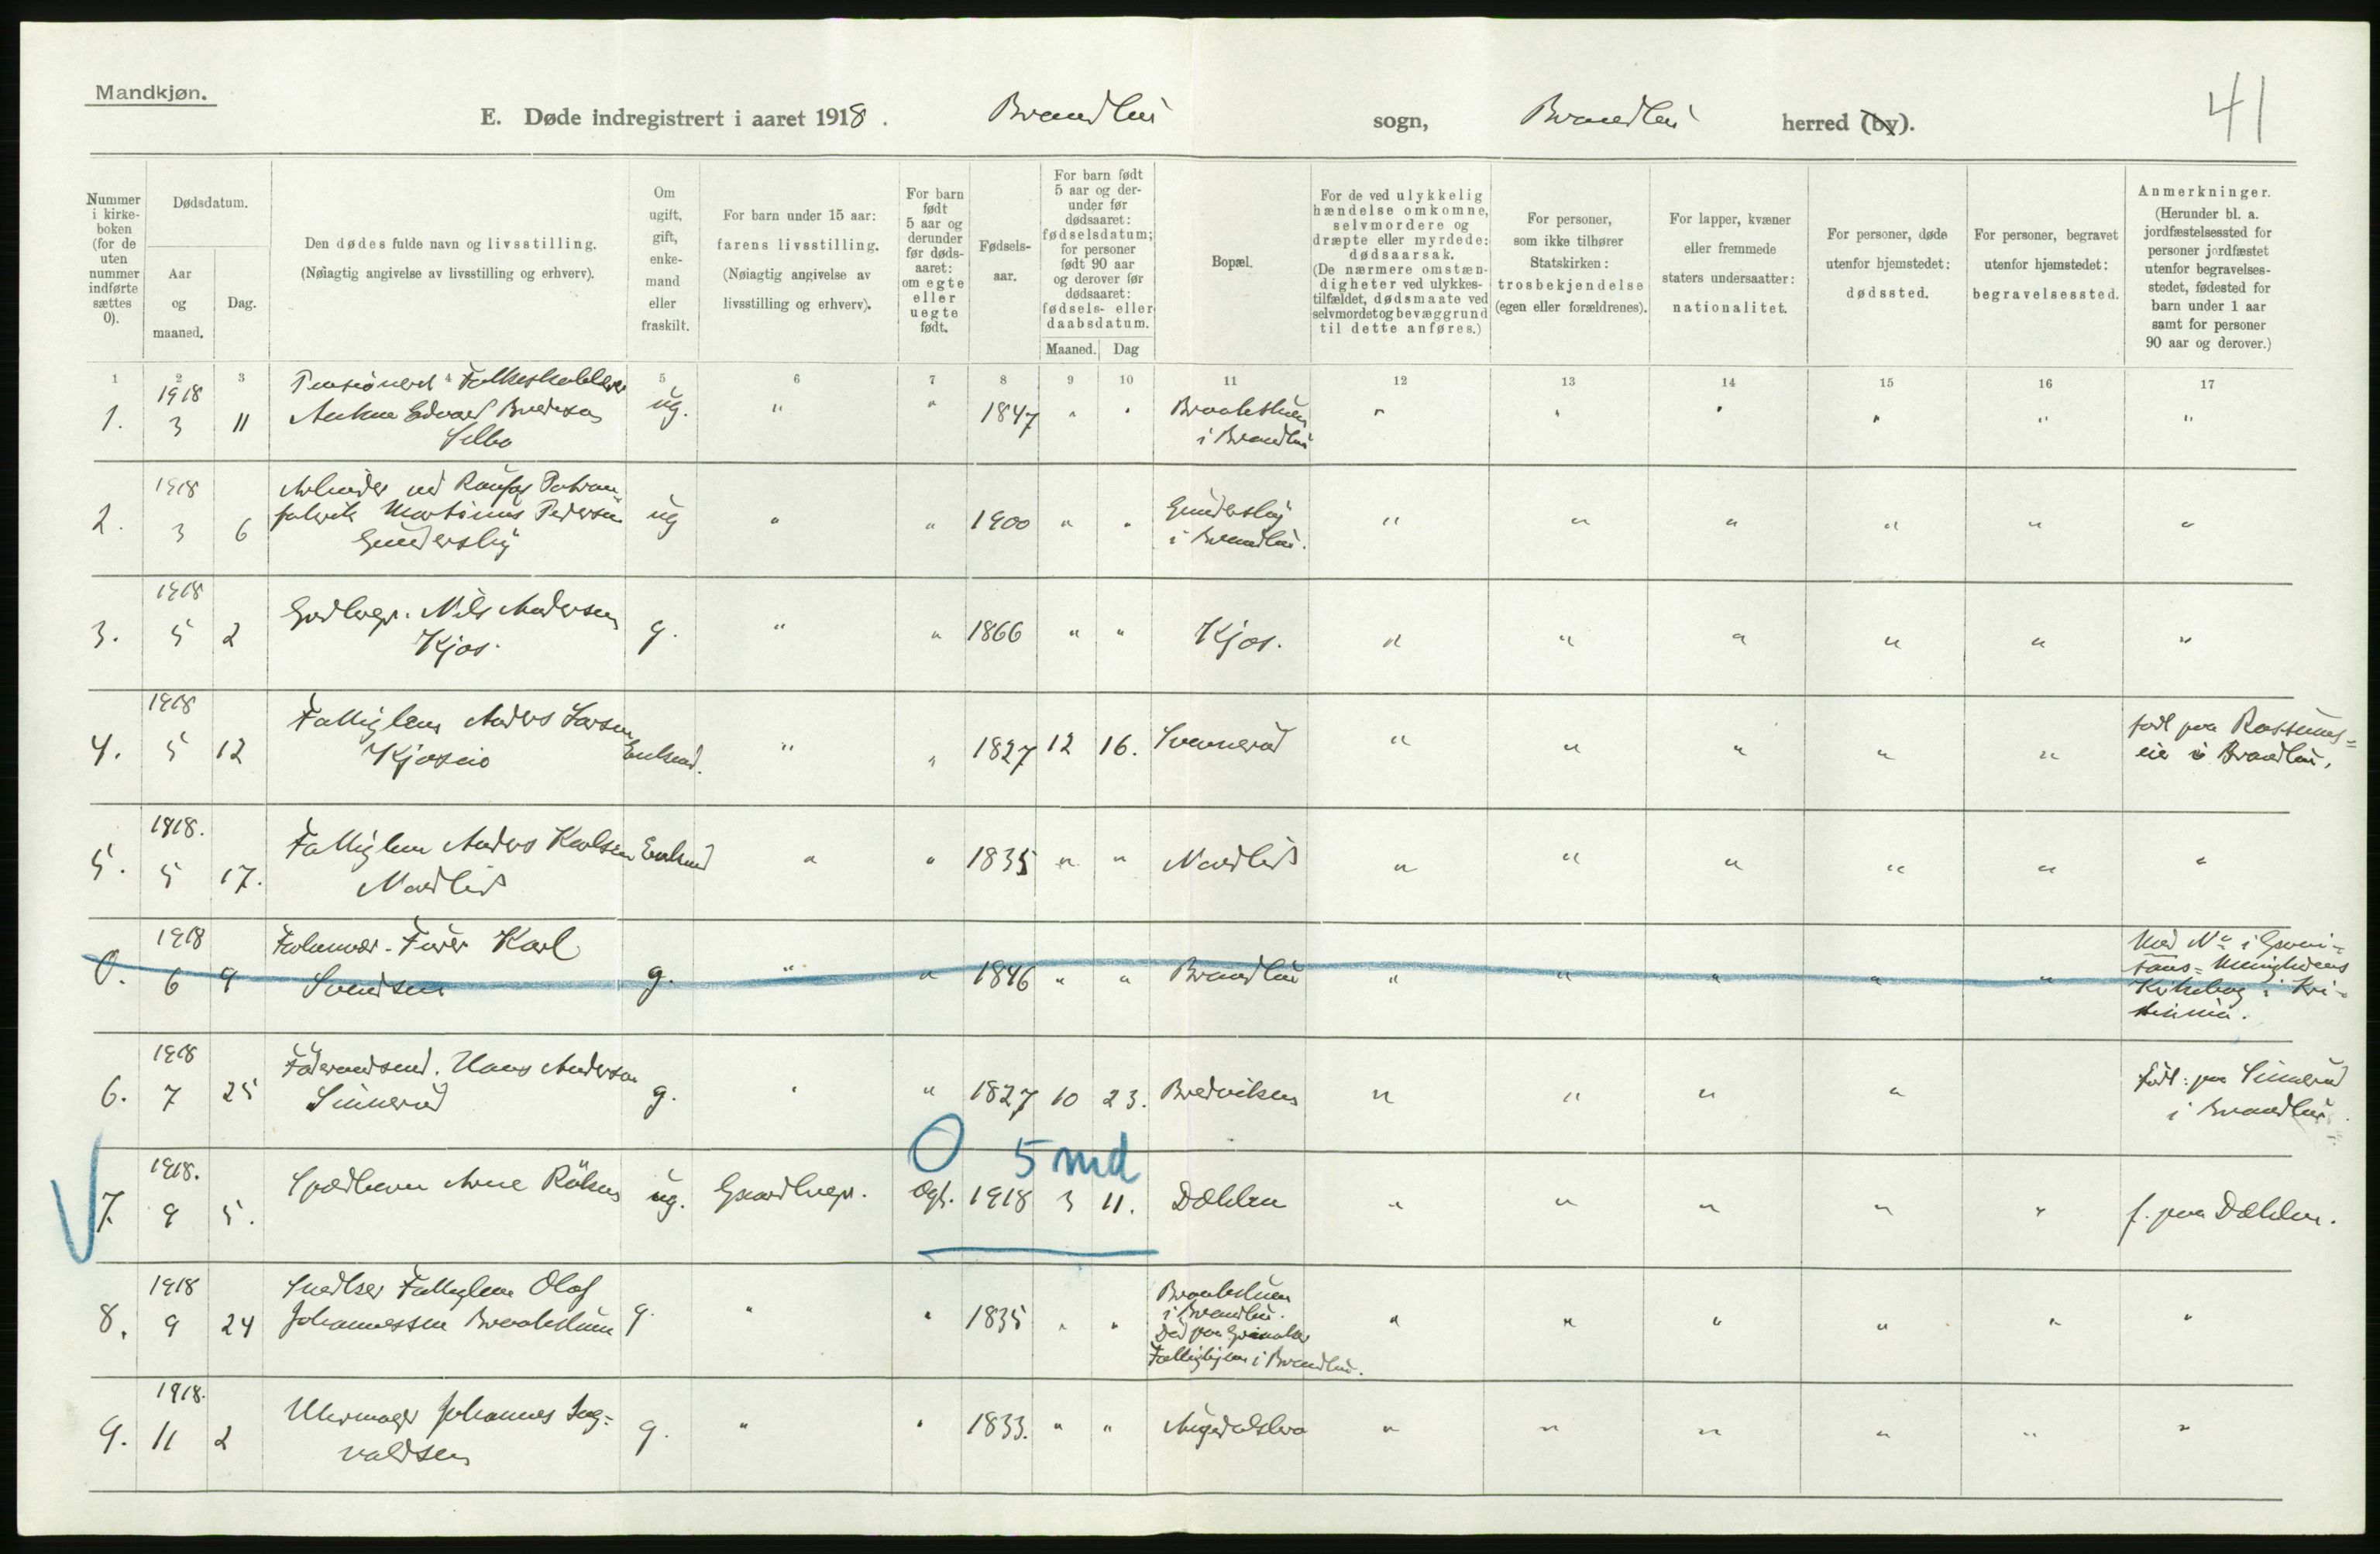 Mandkjøn.
E. Døde indregistrert i aaret 1918. Brandbu sogn, Brandbu herred (by).
41
Nummer i kirke-boken (for de uten nummer indførte sættes 0).
Dødsdatum.
Aar og maaned.
Dag.
Den dødes fulde navn og livsstilling.
(Nøiagtig angivelse av livsstilling og erhverv).
Om ugift, gift, enke-mand eller fraskilt.
For barn under 15 aar: farens livsstilling.
(Nøiagtig angivelse av livsstilling og erhverv).
For barn født 5 aar og derunder før døds-aaret: om egte eller uegte født.
Fødsels-aar.
For barn født 5 aar og der-under før dødsaaret: fødselsdatum; for personer født 90 aar og derover før dødsaaret: fødsels- eller daabsdatum.
Maaned. Dag
Bopæl.
For de ved ulykkelig hændelse omkomne, selvmordere og dræpte eller myrdede: dødsaarsak.
(De nærmere omstæn-digheter ved ulykkes-tilfældet, dødsmaate ved selvmordet og bevæggrund til dette anføres.)
For personer, som ikke tilhører Statskirken: trosbekjendelse (egen eller forældrenes).
For lapper, kvæner eller fremmede staters undersaatter: nationalitet.
For personer, døde utenfor hjemstedet: dødssted.
For personer, begravet utenfor hjemstedet: begravelsessted.
Anmerkninger.
(Herunder bl. a. jordfæstelsessted for personer jordfæstet utenfor begravelses-stedet, fødested for barn under 1 aar samt for personer 90 aar og derover.)
1 2 3 4 5 6 7 8 9 10 11 12 13 14 15 16 17
1. 1918 3 11 Pensioneret Folkeskolelærer
Edvard
ug. " " 1847 " " " " " " " "
i Brandbu
2. 1918 3 6 Arbeider ved Raufos Patron-
fabrik Martinus Pedersen
Gundersby
ug " " 1900 " " Gundersby
i Brandbu. " " " " " "
3. 1918 5 2 Gårdbrgr. Nils Andersen
Kjos.
g. " " 1866 " " Kjos. " " " " " "
4. 1918 5 12 Fattiglem Anders Larsen
Kjoseie
Enkemd. " " 1827 12 16. " " " " "
født paa
eie i Brandbu.
5. 1918. 5 17. Fattiglem Anders Karlsen
Nordlid
Enkemd " " 1835 " " Nordlid " " " " " "
0. 1918 6 9 Furer Karl
Svendsen
g. " " 1846 " " Brandbu " " " " "
Med No i Garni-
sons-Menighedens
Kirkebog i Kri-
stiania.
6. 1918 7 25 Föderaadsmd. Hans Andersen
Sinnerud
g. " " 1827 10 23. Bredviken " " " "
född: paa Sinnerud
i Brandbu
0 5 md
7. 1918. 9 5. Spædbarn Arne
ug. Gaardbrgr. Egt. 1918 3 11. Dæhlen " " " " " f. paa Dæhlen.
8. 1918 9 24 Snedker Fattiglem Olaf
Johannessen
g. " " 1835 " "
i Brandbu.
Død paa
i Brandbu.
" " " " " "
9. 1918. 11 2 Uhrmager Johannes Ing-
valdsen
g. " " 1833. " " " " " " " "